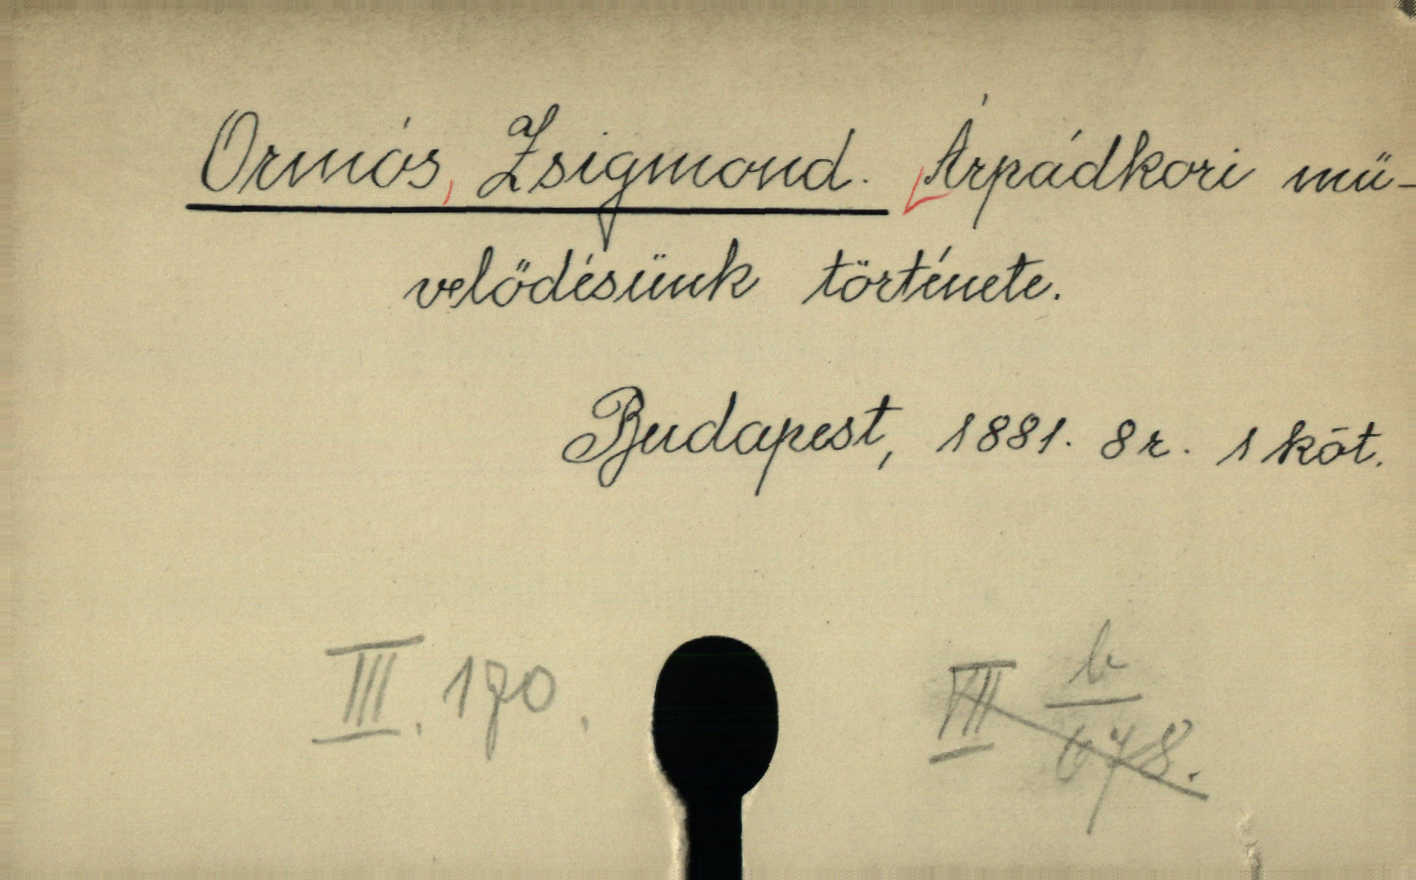 Ormós, Zsigmond. Árpádkori mű-
velődésünk története.
Budapest, 1881. 8r. 1 köt.
III. 170.
VII b/678.